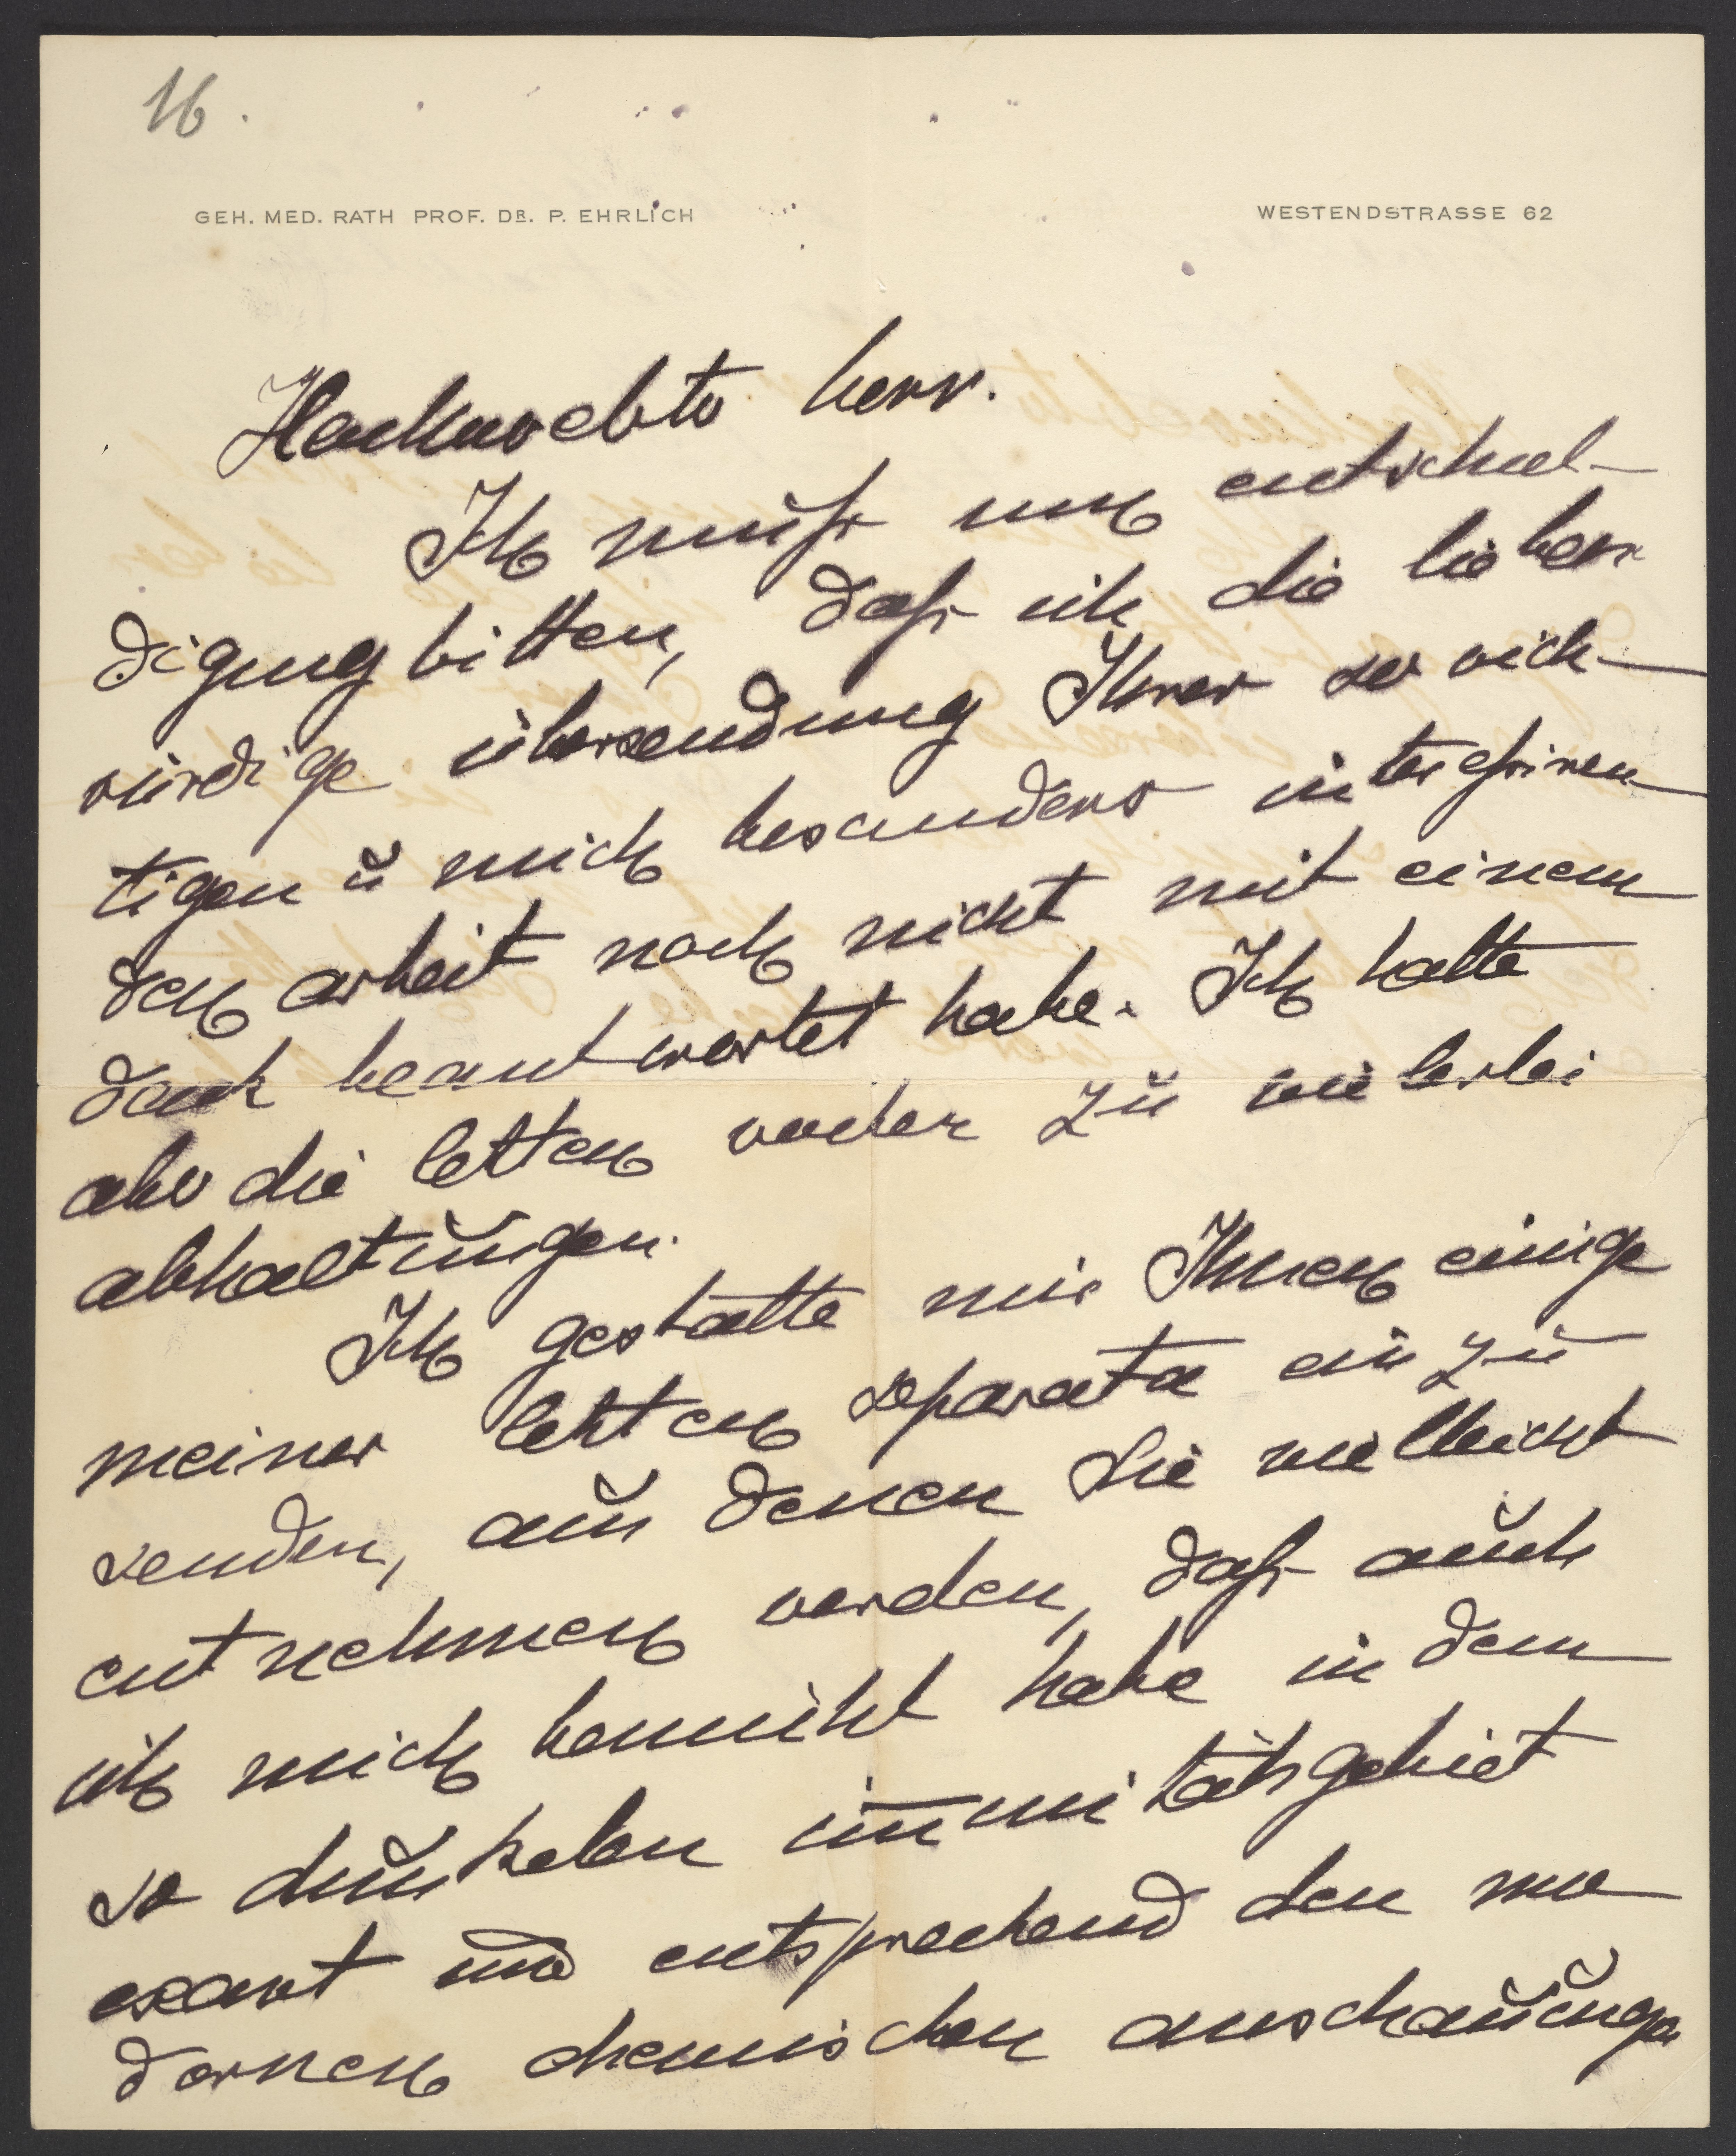 16.
GEH. MED. RATH PROF. DR. P. EHRLICH WESTENDSTRASSE 62
Hochverehrter herr.
Ich muß um entschul-
digung bitten, daß ich die lieben-
würdige übersendung Ihrer so wich-
tigen u mich besonders interessiren-
den arbeit noch nicht mit einem
dank beantwortet habe. Ich hatte
aber die letzten wochen zu vielerlei
abhaltungen.
Ich gestatte mir Ihnen einige
meiner letzten separata ein zu
senden, aus denen Sie vielleicht
entnehmen werden, daß auch
ich mich bemüht habe in dem
so dunkelen imunitätsgebiet
exact und entsprechend den mo
dernen chemischen anschauungen